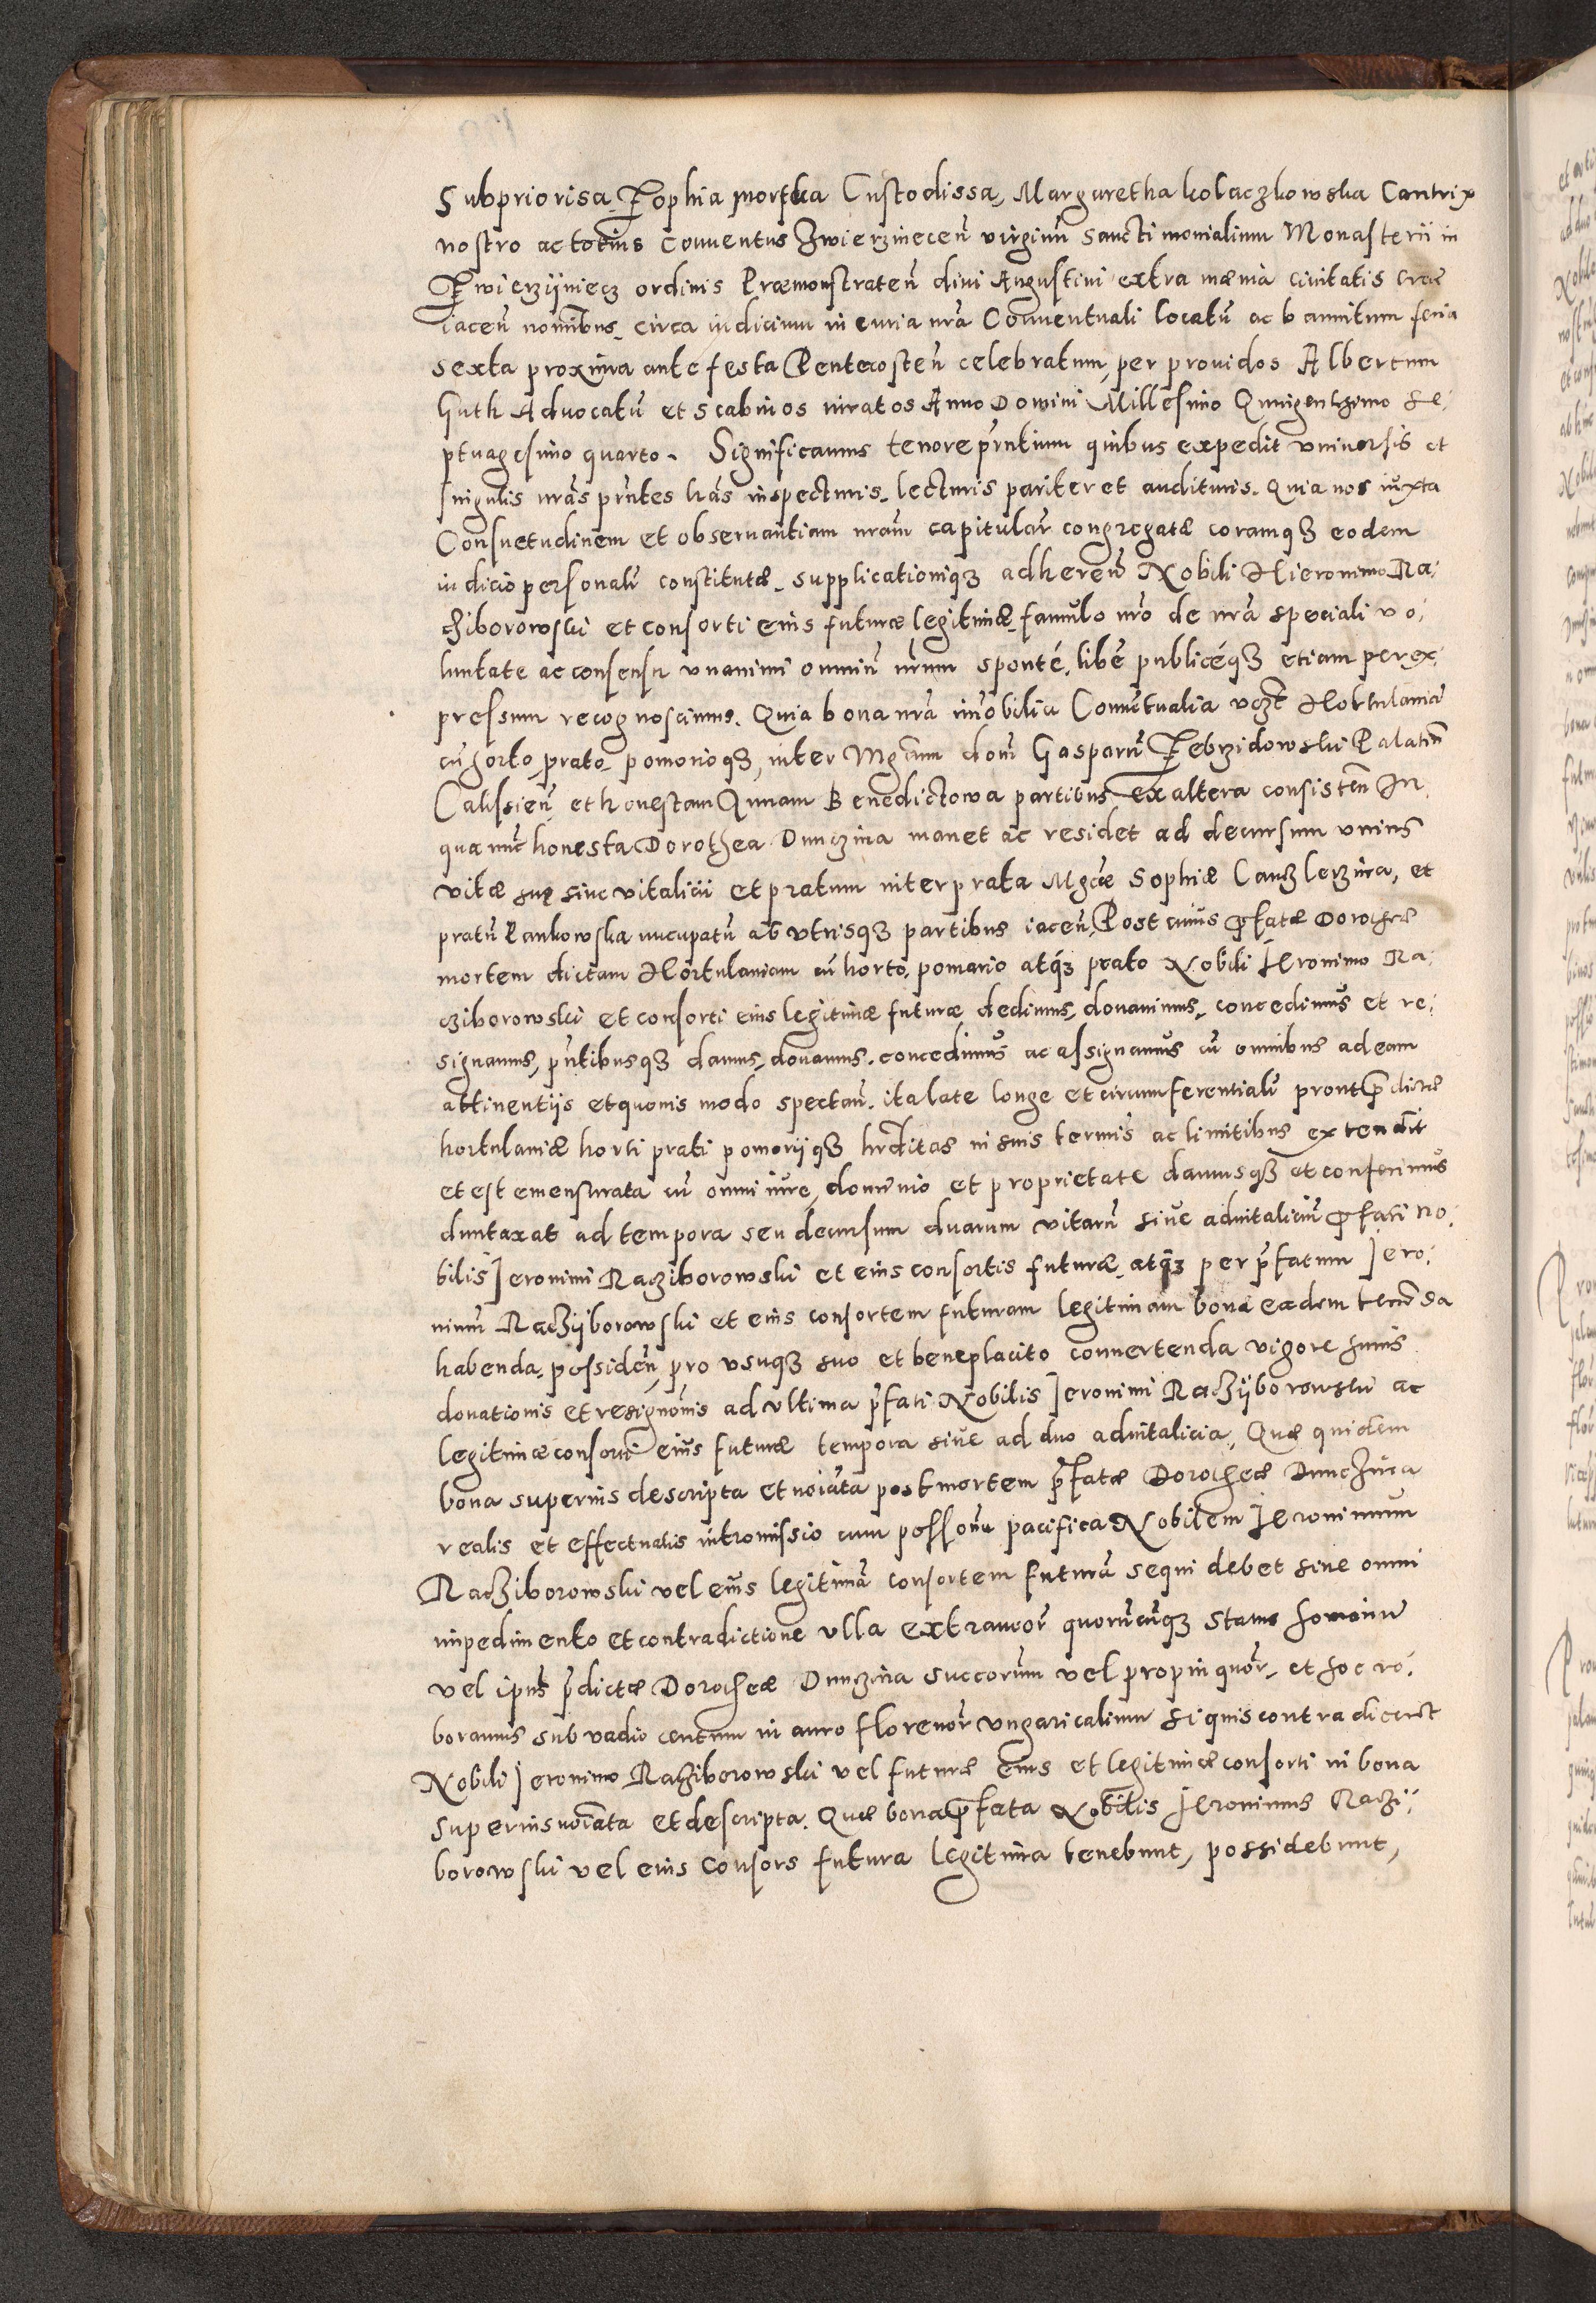 Subpriorisa, Zophia morska Custodissa, Margaretha kolaczkowska Cantrix
nostro ac totius Conuentus Zwierzinecen̄ virginū sanctimonialium Monasterii in
Zwierzÿniecz ordinis Præmonstraten̄ diui Augustini extra mænia ciuitatis Crac̄
iacen̄ nomībus, circa iudicium in curia nr̄a Conuentuali locatū ac bannitum feria
sexta proxima ante festa Pentecosten̄ celebratum, per prouidos Albertum
Guth Aduocatū et scabinos iuratos Anno Domini Millesimo Quingentesimo se:
ptuagesimo quarto. Significamus tenore pr̄ntium quibus expedit vniuersis et
singulis nr̄as pr̄ntes hās inspecturis, lecturis pariter et audituris. Quia nos iuxta
Consuetudinem et obseruantiam nrām capitular̄ congregatæ coramqȝ eodem
iudicio personalr̄ constitutæ, supplicationiqȝ adheren̄ Nobili Hieronimo Ra:
cziborowski et consorti eius futuræ legitimæ, famulo nr̄o de nr̄a speciali vo:
luntate ac consensu vnanimi omniū nr̄um sponté, libē publicéqȝ etiam per ex:
pressum recognoscimus. Quia bona nr̄a imobilia Conuētualia vczt Hortulaniā
cū horto, prato, pomorioqȝ, inter Mgc̄um dom̄ Gasparū Zebrzidowski Palatin̄
Calissien̄ et honestam Annam Benedictowa partibus ex altera consisten̄ In
qua nūc honesta Dorothea Dunczina manet ac residet ad decursum vnius
vitæ suę siue vitalicii et pratum inter prata Mgcæ Sophiæ Canzlerzina, et
pratū Pankowska nūcupatū ab vtrisqȝ partibus iacen̄. Post cuius p̄fatæ Dorotheæ
mortem dictam Hortulaniam cū horto, pomario atqȝ prato Nobili Jeronimo Ra:
cziborowski et consorti eius legitimæ futuræ, dedimus, donauimus, concedimus et re:
signamus, pn̄tibusqȝ damus, donamus, concedimus ac assignamus cū omnibus ad eam
attinentijs et quouis modo spectan̄. ita late longe et circumferentialr̄ prout p̄dictæ
hortulaniæ horti prati pomorijqȝ hrd̄itas in suis termīs ac limitibus extendit
et est emensurata cū omni iure, dominio et proprietate damusqȝ et conferimus
duntaxat ad tempora seu decursum duarum vitarū siue aduitaliciū p̄fati no:
bilis Jeronimi Racziborowski et eius consortis futuræ, atqȝ per p̄fatum Jero:
nimū Raczÿborowski et eius consortem futuram legitimam bona eadem tenēda
habenda, possiden̄, pro vsuqȝ suo et beneplacito conuertenda vigore huius
donationis et resignōnis ad vltima p̄fati Nobilis Jeronimi Raczÿborowski ac
legitimæ consorti eius futuræ tempora siue ad duo aduitalicia, Quæ quidem
bona superius descripta et noīata post mortem p̄fatæ Dorotheæ Dunczina
realis et effectualis intromissio cum possōne pacifica Nobilem Jeronimum
Racziborowski vel eius legitimā consortem futurā sequi debet sine omni
impedimento et contradictione vlla extraneor̄ quorūcūqȝ status hominū
vel ipsius p̄dictæ Dorotheæ Dunczina succorum vel propinquor̄, et hoc ro:
boramus sub vadio centum in auro florenor̄ vngaricalium si quis contradiceret
Nobili Jeronimo Racziborowski vel futuræ eius et legitimæ consorti in bona
superius noīata et descripta. Quæ bona p̄fata Nobilis Jeronimus Raczi:
borowski vel eius consors futura legitima tenebunt, possidebunt,